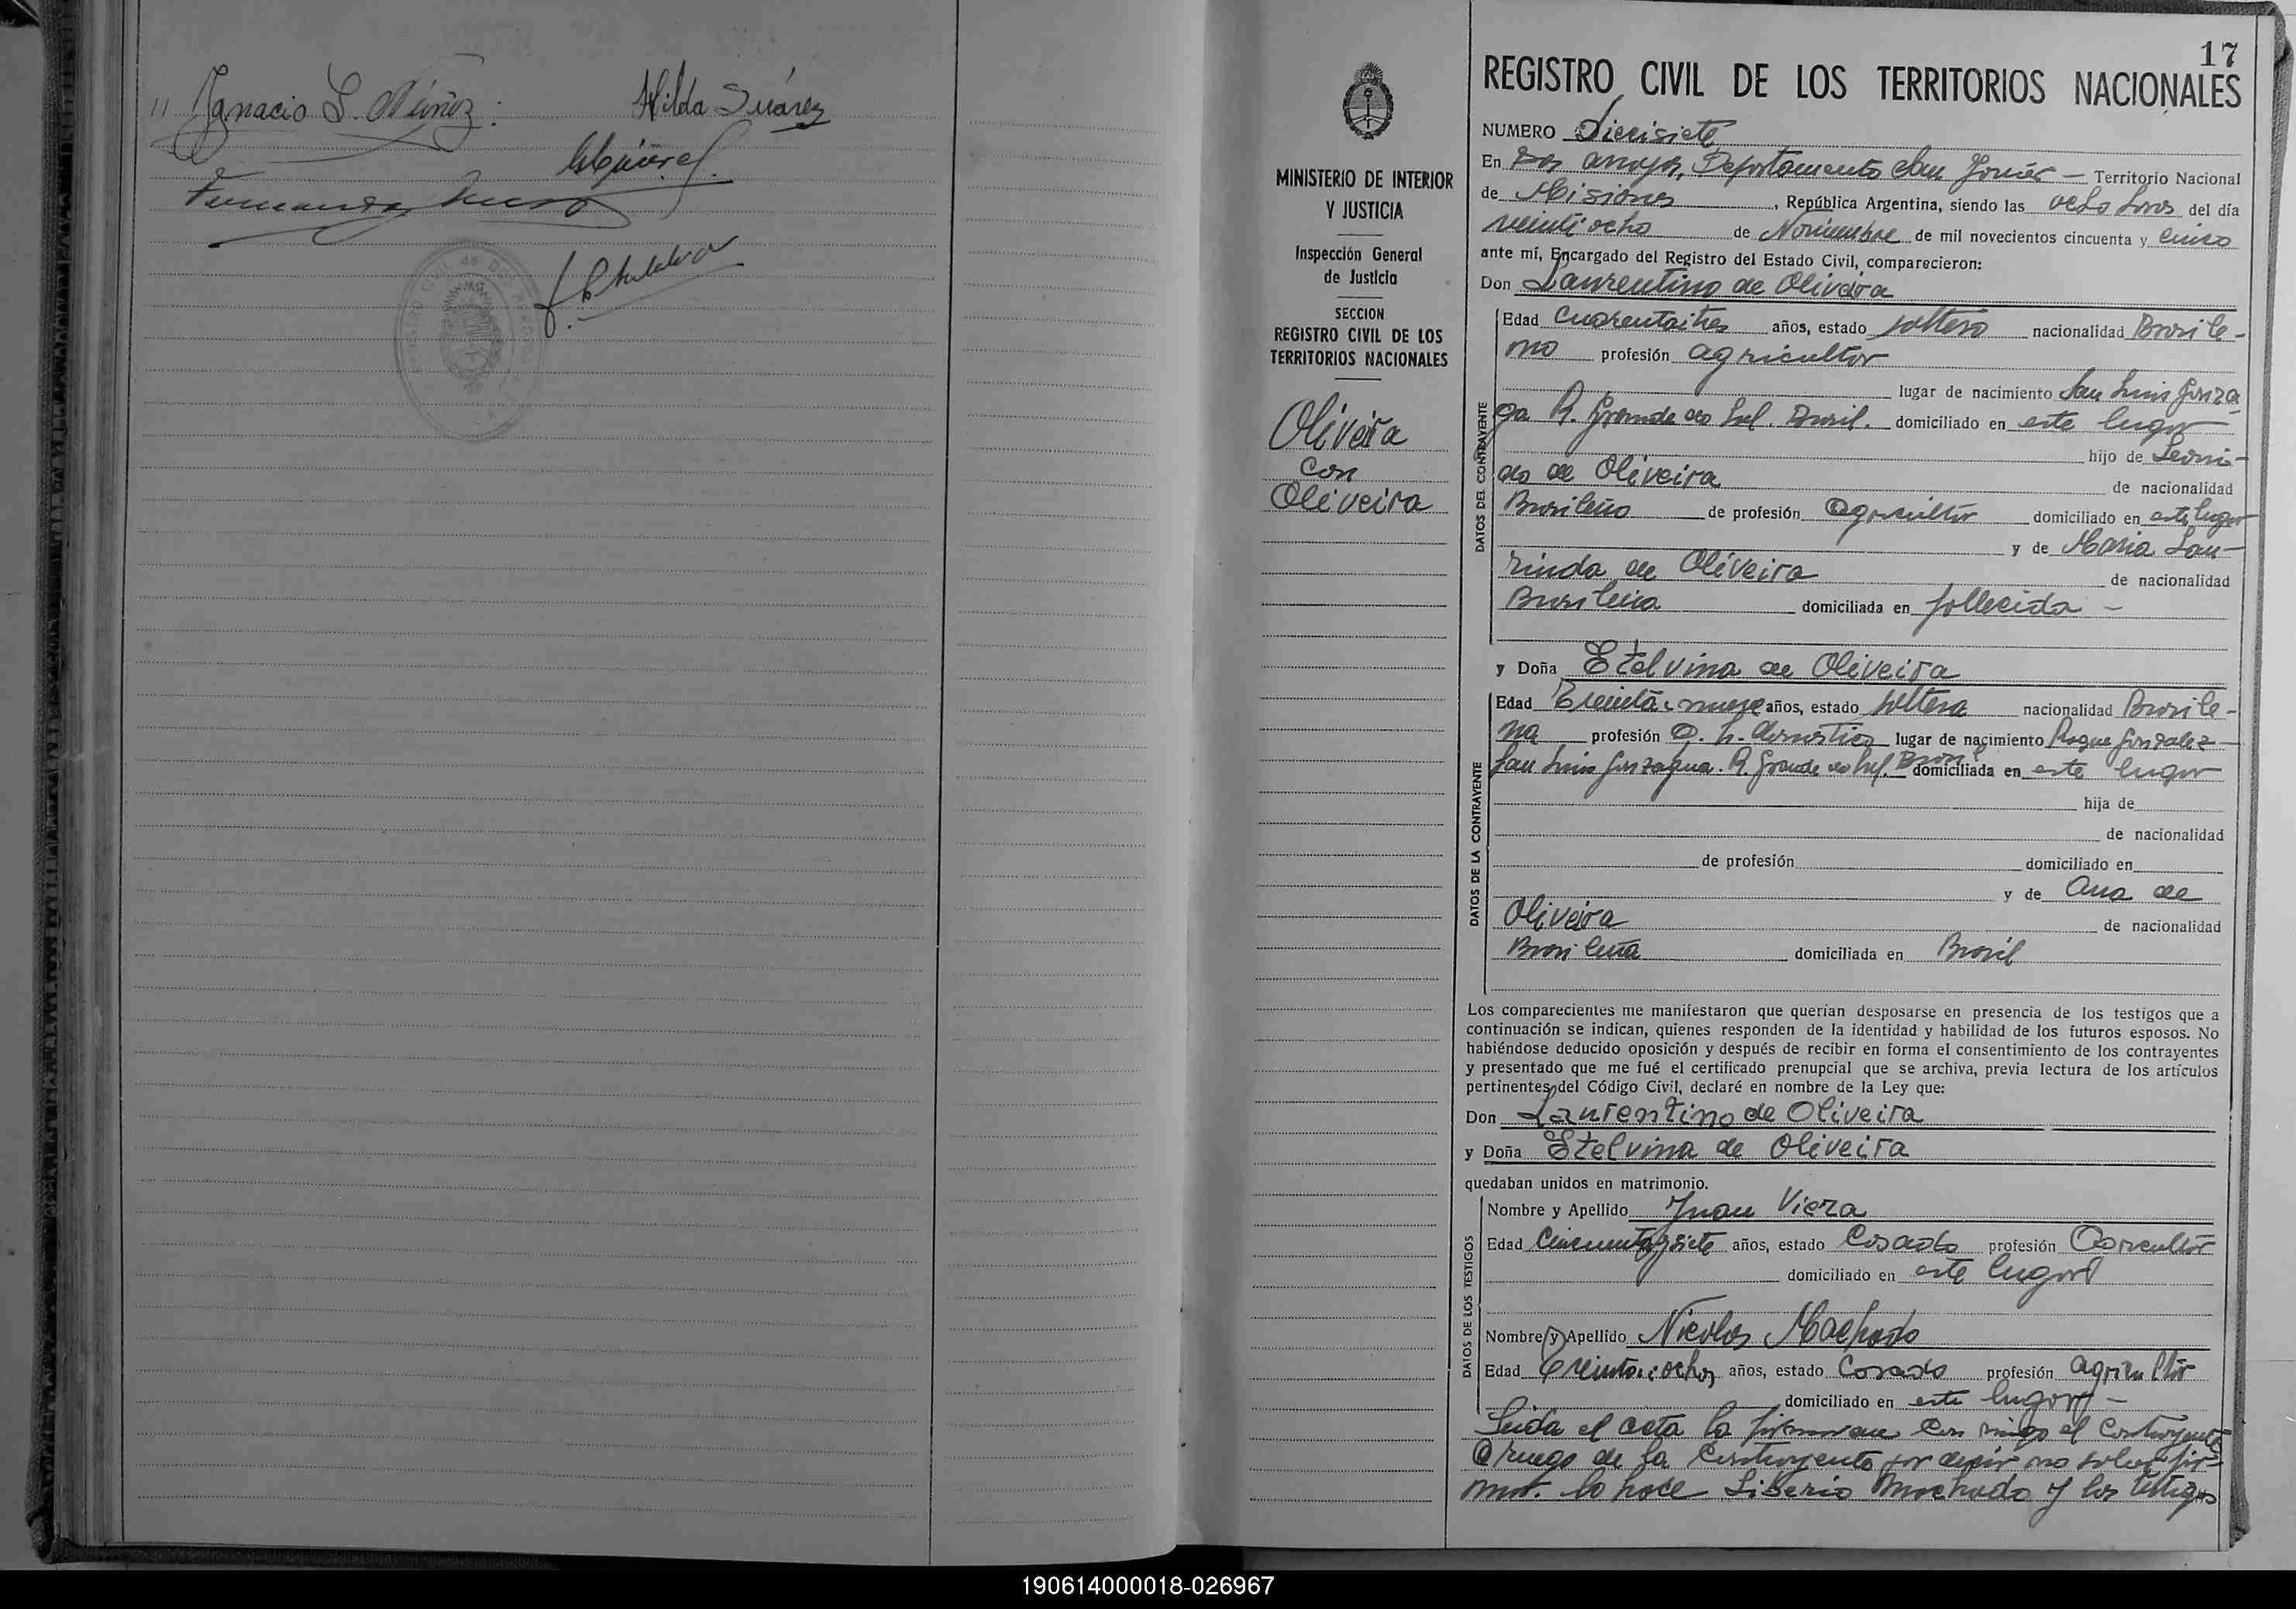 Ignacio S. Núñez. Hilda Suárez
17
REGISTRO CIVIL DE LOS TERRITORIOS NACIONALES
MINISTERIO DE INTERIOR
Y JUSTICIA
Inspección General
de Justicia
SECCION
REGISTRO CIVIL DE LOS
TERRITORIOS NACIONALES
Oliveira
con
Oliveira
NUMERO Diecisiete
En Dos arroyos, Departamento San Javier — Territorio Nacional
de Misiones, República Argentina, siendo las ocho horas del día
veintiocho de Noviembre de mil novecientos cincuenta y cinco
ante mí, Encargado del Registro del Estado Civil, comparecieron:
Don Laurentino de Oliveira
DATOS DEL CONTRAYENTE
Edad Cuarentaitres años, estado soltero nacionalidad Brasile-
ño profesión agricultor
lugar de nacimiento San Luis Gonza
ga R. Grande do Sul. Brasil. domiciliado en este lugar
hijo de Leoni-
do de Oliveira de nacionalidad
Brasileño de profesión agricultor domiciliado en este lugar
y de Maria Lau-
rinda de Oliveira de nacionalidad
Brasileña domiciliada en fallecida —
y Doña Etelvina de Oliveira
DATOS DE LA CONTRAYENTE
Edad Treinta i nueve años, estado soltera nacionalidad Brasile-
ña profesión Q. h. domestico lugar de nacimiento Roque Gonzalez
San Luis Gonzagua. R. Grande do Sul. Brasil domiciliada en este lugar
hija de
de nacionalidad
de profesión domiciliado en
y de Ana de
Oliveira de nacionalidad
Brasileña domiciliada en Brasil
Los comparecientes me manifestaron que querían desposarse en presencia de los testigos que a
continuación se indican, quienes responden de la identidad y habilidad de los futuros esposos. No
habiéndose deducido oposición y después de recibir en forma el consentimiento de los contrayentes
y presentado que me fué el certificado prenupcial que se archiva, previa lectura de los artículos
pertinentes del Código Civil, declaré en nombre de la Ley que:
Don Laurentino de Oliveira
y Doña Etelvina de Oliveira
quedaban unidos en matrimonio.
DATOS DE LOS TESTIGOS
Nombre y Apellido Juan Viera
Edad Cincuenta y siete años, estado Casado profesión Agricultor
domiciliado en este lugar
Nombre y Apellido Nicolas Machado
Edad Treinta i ocho años, estado Casado profesión agricultor
domiciliado en este lugar —
Leida el acta la firmaron con migo el contrayente
a ruego de la contrayente por decir no saber fir-
mar. lo hace Liberio Machado y los testigos
190614000018-026967